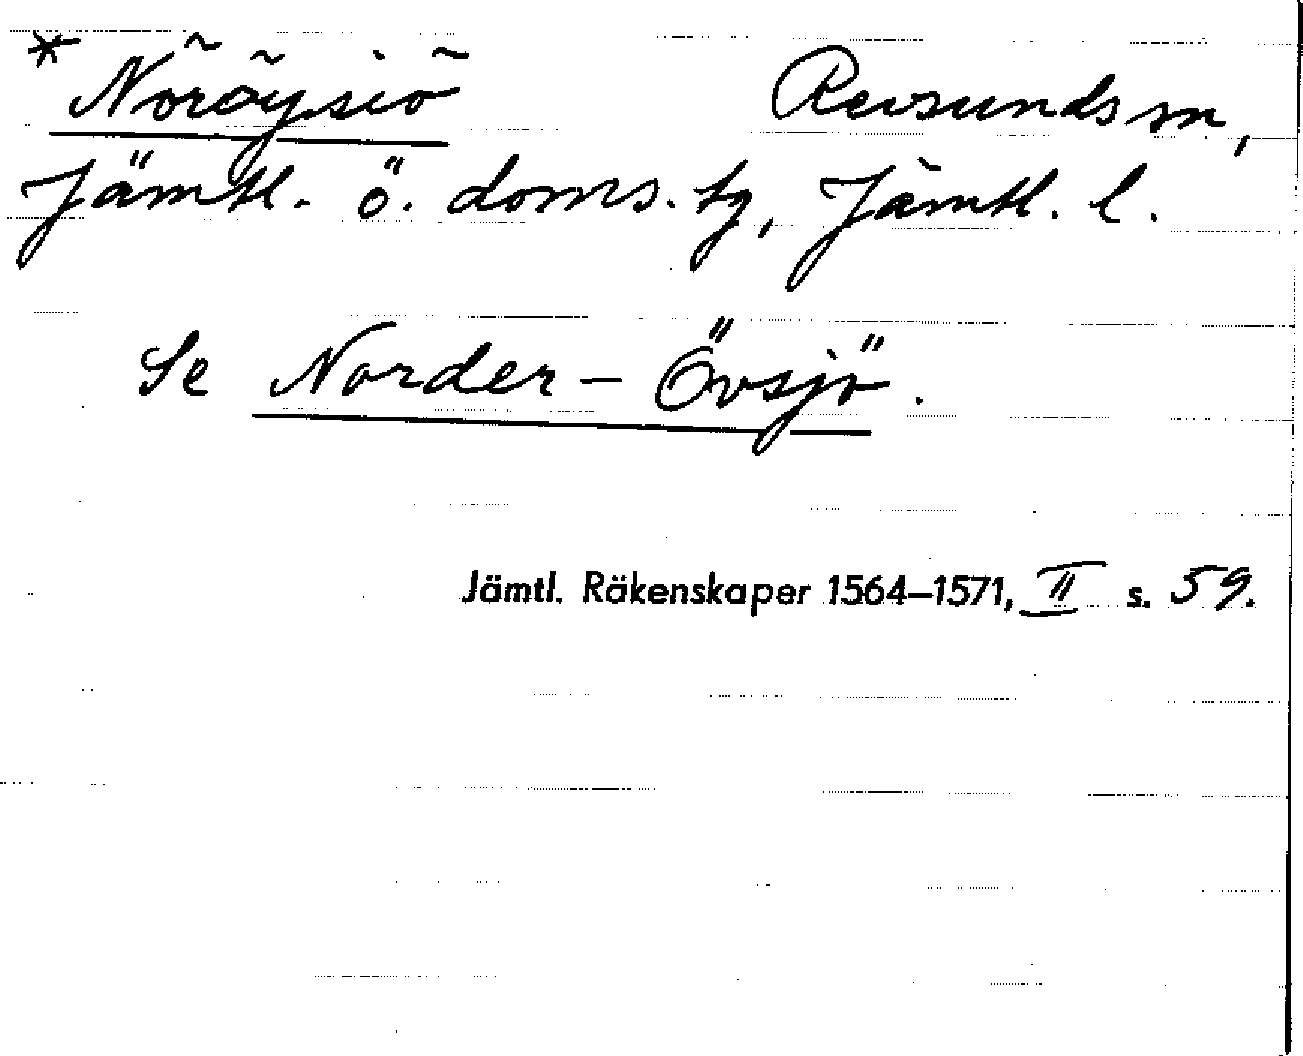 * Nõrõysiõ Revsunds sn,
Jämtl. ö. doms. tg, Jämtl. l.
Se Norder-Övsjö.
Jämtl. Räkenskaper 1564–1571, II s. 59.